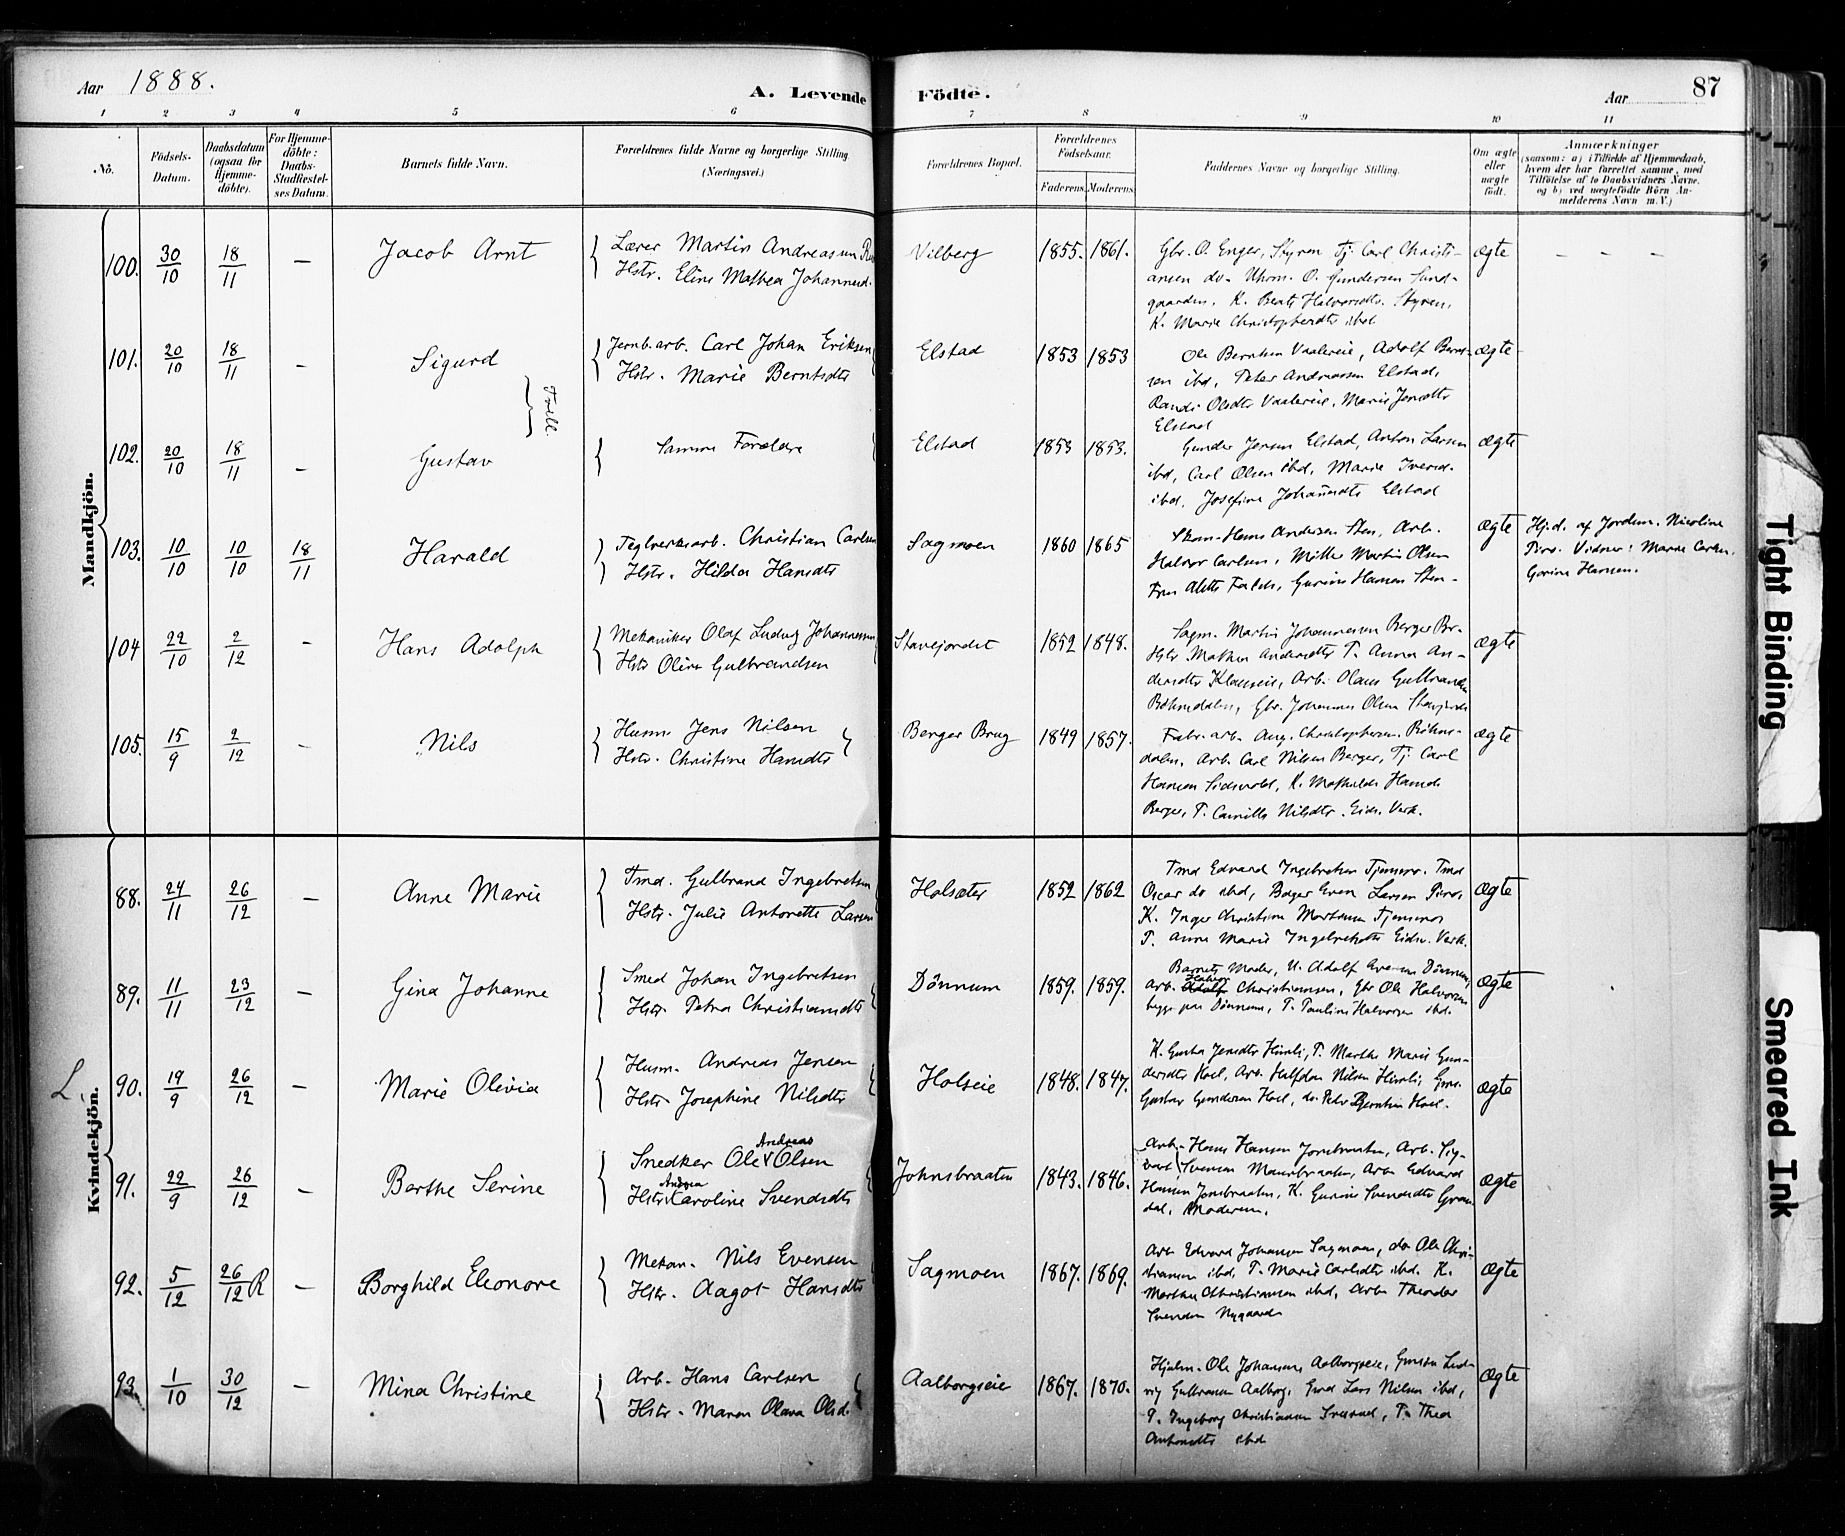 Aar 1888.
A. Levende Födte.
Aar 87
1 2 3 4 5 6 7 8 9 10 11
No.
Födsels-Datum.
Daabsdatum (ogsaa for Hjemme-döbte).
For Hjemme-döbte: Daabs-Stadfæstel-ses Datum.
Barnets fulde Navn.
Forældrenes fulde Navne og borgerlige Stilling (Næringsvei.)
Forældrenes Bopæl.
Forældrenes Födselsaar.
Faderens. Moderens.
Faddernes Navne og borgerlige Stilling.
Om ægte eller uægte födt.
Anmærkninger
(saasom: a) i Tilfælde af Hjemmedaab,
hvem der har forrettet samme, med
Tilföielse af to Daabsvidners Navne,
og b) ved uægtefödte Börn An-
melderens Navn m. V.)
Mandkjön.
100. 30/10 18/11 — Jacob Arnt
Lærer Martin Andreassen
Hstr. Eline Mathea Johannesd.
Vilberg 1855. 1861.
Gbr. O. Enger, Styren Tj. Carl Christi-
ansen do. O. Gundersen Sund-
gaarden. K. Halvorsdtr. Styren,
K. Marie Christophersdtr ibd.
ægte - - -
101. 20/10 18/11 - Sigurd
Jernb.arb. Carl Johan Eriksen
Hstr. Marie Berntsdtr
Elstad 1853 1853
Ole Berntsen Vaalereie, Adolf Bernt-
sen ibd, Peter Andreassen Elstad,
Randi Olsdtr Vaalereie, Marie Jensdtr
Elstad
ægte
Tvill.
102. 20/10 18/11 - Gustav
Samme Forældre
Elstad 1853 1853.
Gunder Jensen Elstad, Anton Larsen
ibd, Carl Olsen ibd, Marie Iversd.
ibd. Josefine Johannsdtr Elstad
ægte
103. 10/10 10/10 18/11 Harald
Teglverksarb. Christian Carlsen
Hstr. Hilda Hansdtr
Sagmoen 1860 1865
Hans Andersen Sten, Arb.
Halvor Carlsen, Martin Olsen
Gurine Hansen Sten-
ægte
Hj.d. af Jordm. Nicoline
Vidner: Maren Carlsen,
Gorine Hansen.
104 22/10 2/12 - Hans Adolph
Mekaniker Olaf Ludvig Johannessen
Hstr Oline Gulbrandsen
Stavejordet 1852 1848.
Sagm. Martin Johannesen Berger Br.
Hstr. Mathea Andersdtr T. Anna An-
dersdtr Arb. Olaus Gulbrandsen
Böhmsdalen, Gbr. Johannes Olsen
ægte
105. 15/9 2/12 - Nils
Husm Jens Nilsen
Hstr. Christine Hansdtr
Berger Brug 1849 1857.
Fabr. arb. Aug. Christophersen Böhms-
dalen. Arb. Carl Nilsen Berger, Tj. Carl
Hansen K. Mathilde Hansd.
Berger, T. Camilla Nilsdtr. Eids. Verk.
ægte
Kvindekjön.
88. 24/11 26/12 — Anne Marie
Tmd. Gulbrand Ingebretsen
Hstr. Julie Antonette Larsen
Holsæter 1852 1862
Tmd Edvard Ingebretsen Tjernsmo. Tmd
Oscar do ibd, Bager Even Larsen
K. Inger Christine Mortensen Tjernsmo
T. Anne Marie Ingebretsdtr Eidsv. Verk.
ægte
89. 11/11 23/12 — Gina Johanne
Smed Johan Ingebretsen
Hstr Petra Christiansdtr
Dönnum 1859. 1859.
Barnets Moder, U. Adolf Dönnum,
Arb. Christiansen, Gbr Ole Halvorsen
Dönnum, T. Pauline Halvorsen ibd.
ægte
L.
90. 19/9 26/12 - Marie Olivia
Husm. Andreas Jensen
Hstr Josephine Nilsdtr
Holseie 1848. 1847.
K. Gusta Jensdtr T. Marthe Marie Gun-
dersdtr Hoel, Arb. Halfdan Nilsen
Gustav Gundersen Hoel, do. Peder Berntsen Hoel.
ægte
91. 22/9 26/12 - Berthe Serine
Snedker Ole Andreas Olsen
Hstr Andrea Karoline Svendsdtr
Johnsbraaten 1843. 1846.
Arb. Hans Hansen Jonsbraaten, Arb. Sig-
vart Svensen Arb Edvard
Hansen Jonsbraaten, K. Gurine Svendsdtr
Moderen.
ægte
92. 5/12 26/12 R — Borghild Eleonore
Mekan. Nils Evensen
Hstr. Aagot Hansdtr
Sagmoen 1867. 1869.
Arb Edvard Johansen Sagmoen, do Ole Chri-
stiansen ibd. T. Marie Carlsdtr ibd. K.
Marthe Christiansen ibd, Arb Theodor
Svendsen Nygaard
ægte
93. 1/10 30/12 - Mina Christine
Arb. Hans Carlsen
Hstr. Maren Olava Olsd.
Aalborgseie 1867. 1870.
Ole Johansen Aalborgseie, Lud-
vig Gulbransen Aalborg, Lars Nilsen ibd,
Ingeborg Christiansen T. Thea
Antonsdtr ibd
ægte
Tight Binding
Smeared Ink